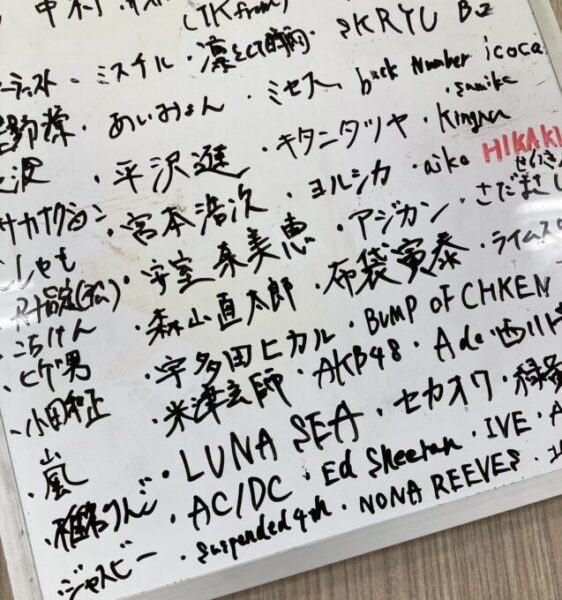 中村
(TK from)
・ミスチル・凛として時雨・SKRYU B'z
星野源・あいみょん・ミセス back number icoca
・sumika
・平沢進・キタニタツヤ・King gnu
サカナクション・宮本浩次・ヨルシカ・aiko HIKAKI
せいきん
・安室奈美恵・アジカン・さだまさし
・森山直太朗・布袋寅泰・ライムス
こちけん
・ヒゲ男・宇多田ヒカル・BUMP OF CHKEN
・小田和正・米津玄師・AKB48・Ado・西川
・嵐・LUNA SEA・セカオワ・緑黄
・椎名りんご・AC/DC・Ed Sheeran・IVE・A
・ジャスビー・suspended 4th・NONA REEVES